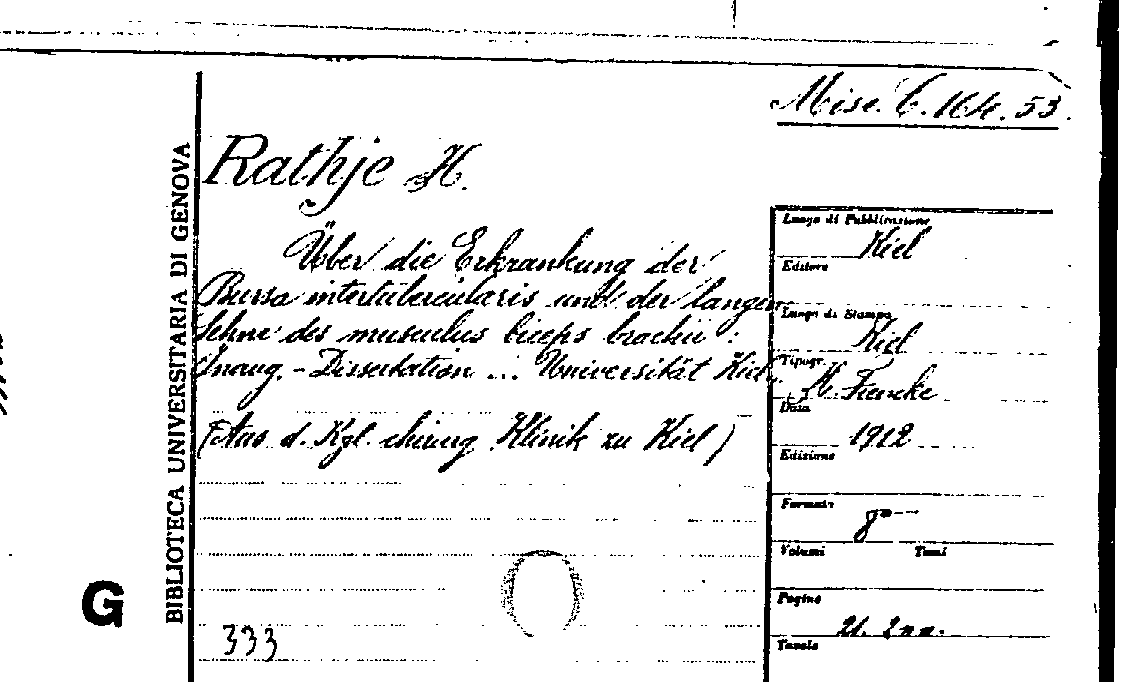 Misc. C. 164. 53.
BIBLIOTECA UNIVERSITARIA DI GENOVA
G
Rathje H.
Über die Erkrankung der
Bursa intertubercularis und der langen
Sehne des musculus biceps brachii :
Inaug.-Dissertation ... Universität Kiel.
(Aus d. Kgl. chirurg Klinik zu Kiel)
333
Luogo di Pubblicazione
Kiel
Editore
Luogo di Stampa
Kiel
Tipogr.
Data
1912
Edizione
Formato
8°
Volumi Tomi
Pagine
21. 2 nn.
Tavole